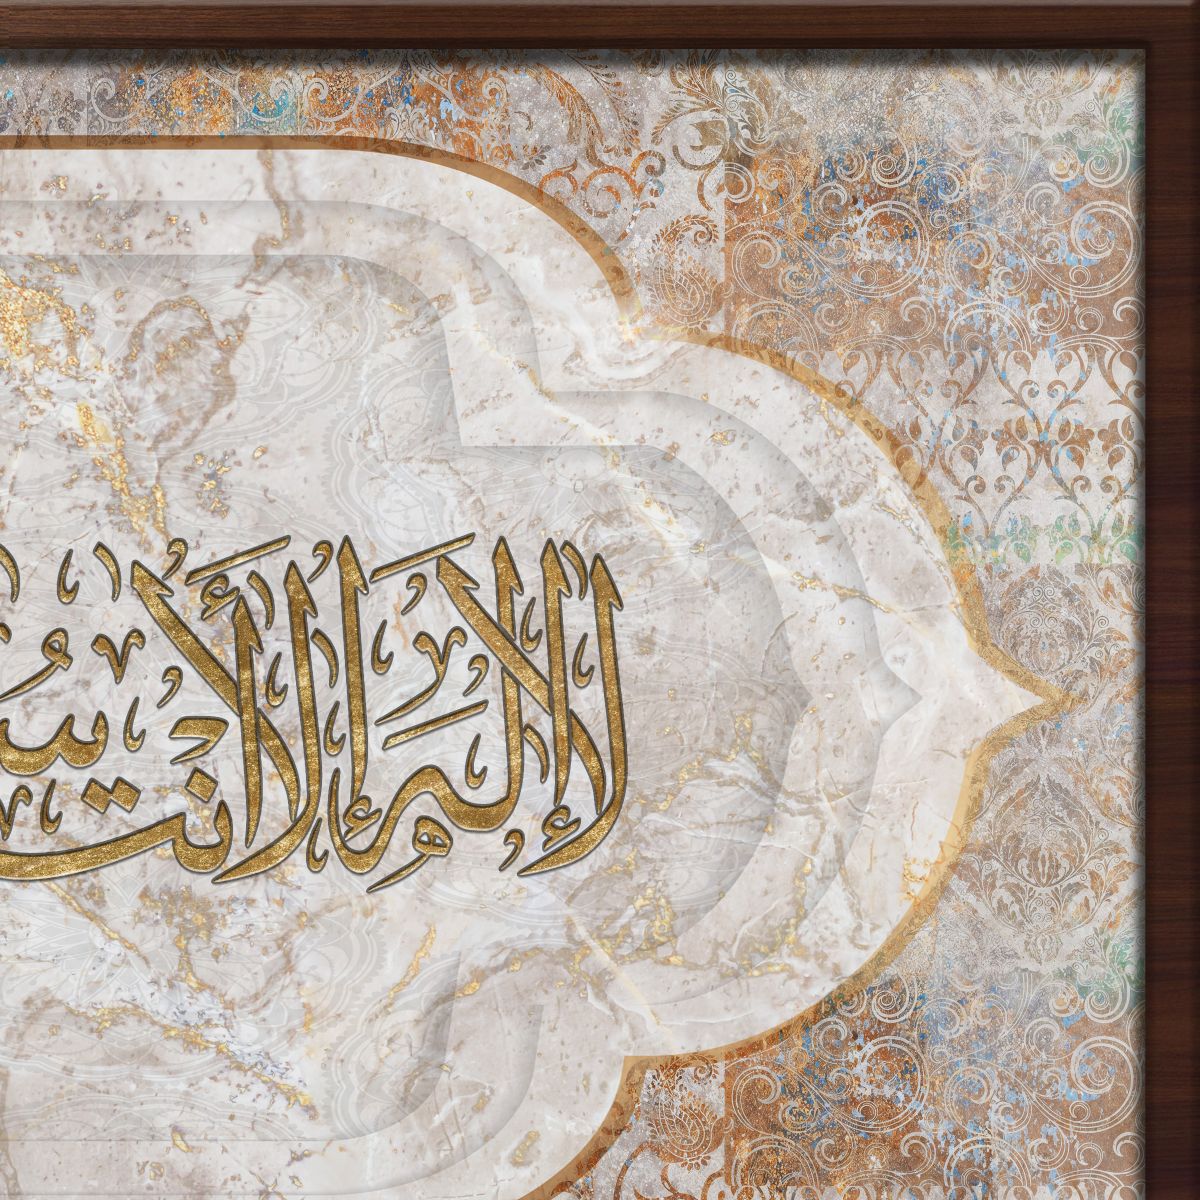 لَا إِلَٰهَ إِلَّا أَنْتَ